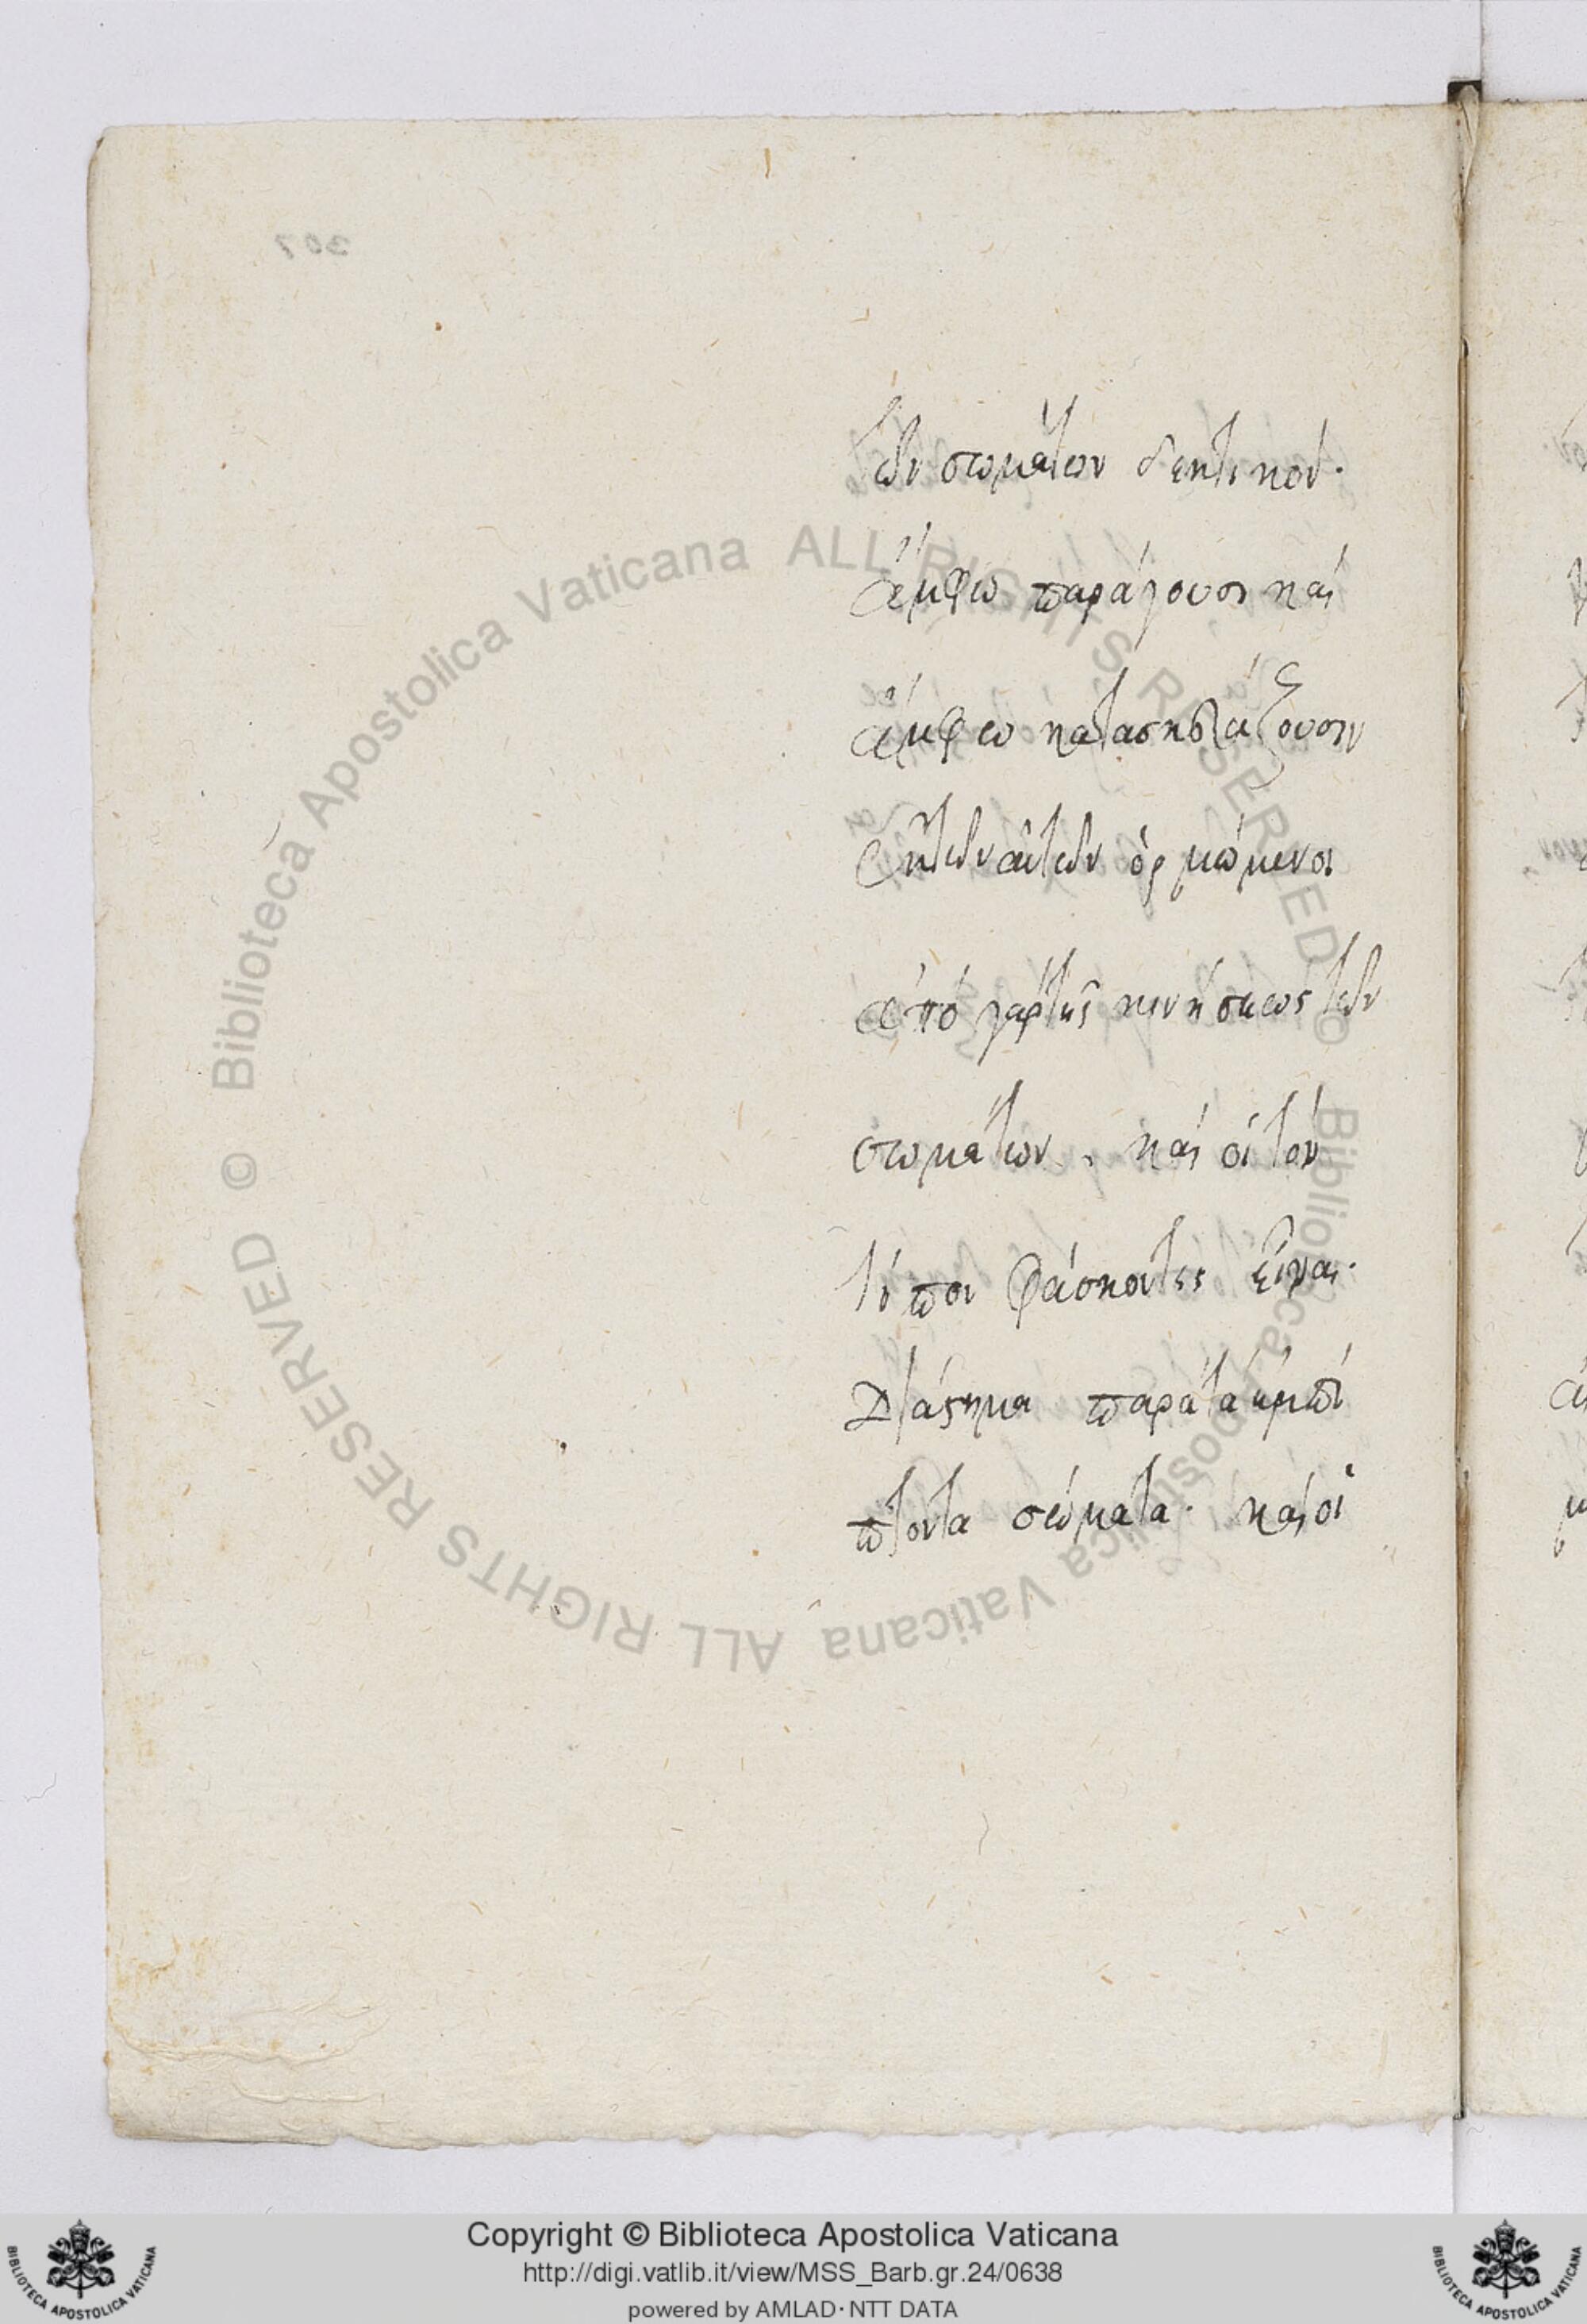 τῶν σωμάτων δεκτικόν.
ἄμφω παράγουσι καὶ
ἄμφω κατασκευάζουσιν
ἐκ τῶν αὐτῶν ὁρμώμενοι
ἀπὸ γὰρ τῆς κινήσεως τῶν
σωμάτων. καὶ οἱ τὸν
τόπον φάσκοντες εἶναι.
Διάστημα παρὰ τὰ ἐμπί
πτοντα σώματα. καὶ οἱ
307
© Biblioteca Apostolica Vaticana ALL RIGHTS RESERVED
© Biblioteca Apostolica Vaticana ALL RIGHTS RESERVED
Copyright © Biblioteca Apostolica Vaticana
http://digi.vatlib.it/view/MSS_Barb.gr.24/0638
powered by AMLAD · NTT DATA
BIBLIOTECA APOSTOLICA VATICANA
BIBLIOTECA APOSTOLICA VATICANA